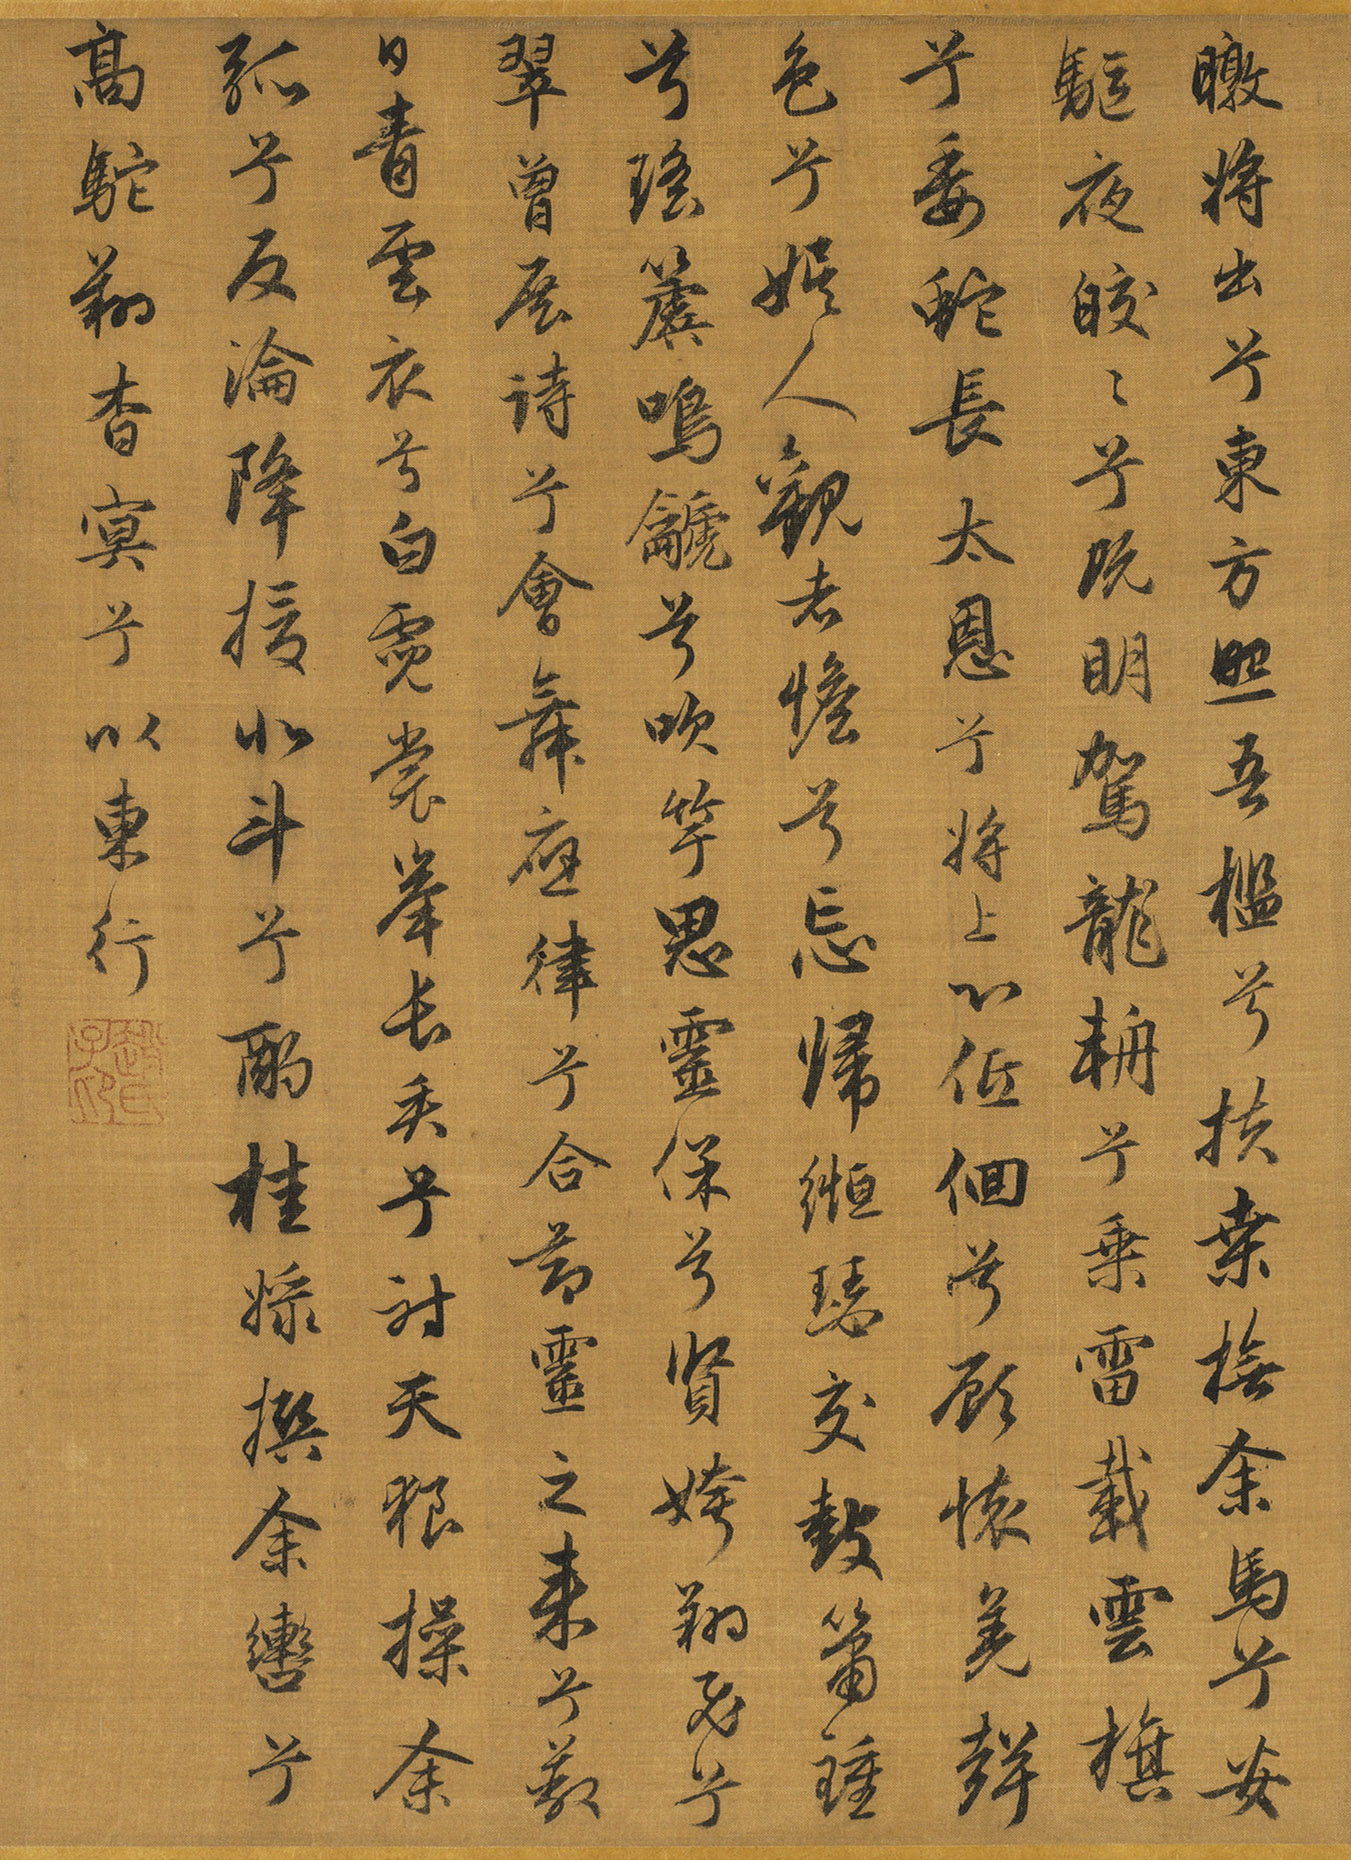 暾將出兮東方照吾檻兮扶桒撫余馬兮安
驅夜皎〻兮既明駕龍輈兮乗雷載雲旗
兮委蛇長太息兮將上心低佪兮顧懷羌聲
色兮娯人觀者憺兮忘歸緪瑟交鼓簫鍾
兮瑶簴鳴䶵兮吹竽思靈保兮賢姱翔飛兮
翠曾展詩兮會舞應律兮合節靈之来兮蔽
日青雲衣兮白霓裳舉長矢兮射天狼操余
弧兮反淪降援北斗兮酌桂漿撰余轡兮
髙駝翔杳冥兮以東行
趙氏子昂